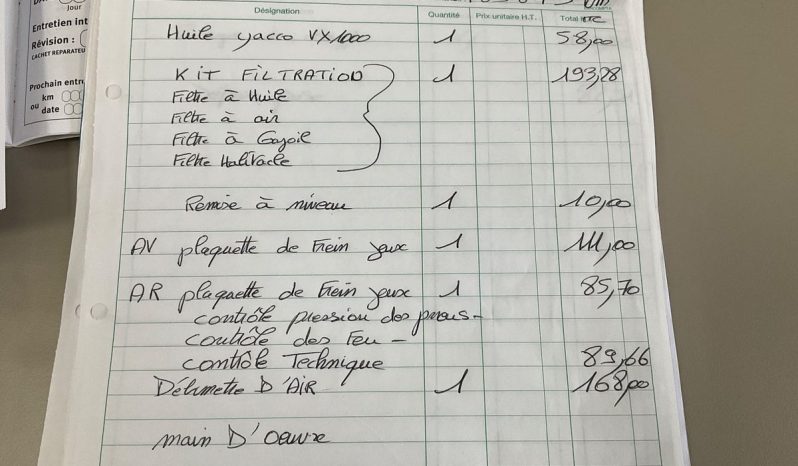 Jour
Entretien int
Révision : (
CACHET REPARATEU
Prochain entre
km
ou
date
Désignation Quantité Prix unitaire H.T. Total TTC
Huile yacco VX1000 1 58,00
KIT FILTRATION 1 193,28
Filtre à Huile
Filtre à air
Filtre à Gazoil
Filtre Habitacle
Remise à niveau 1 10,00
AV plaquette de Frein jeux 1 111,00
AR plaquette de Frein jeux 1 85,70
contrôle pression des pneus -
contrôle des Feu -
contrôle Technique 89,66
Débimetre D'AiR 1 168,00
main D'oeuvre